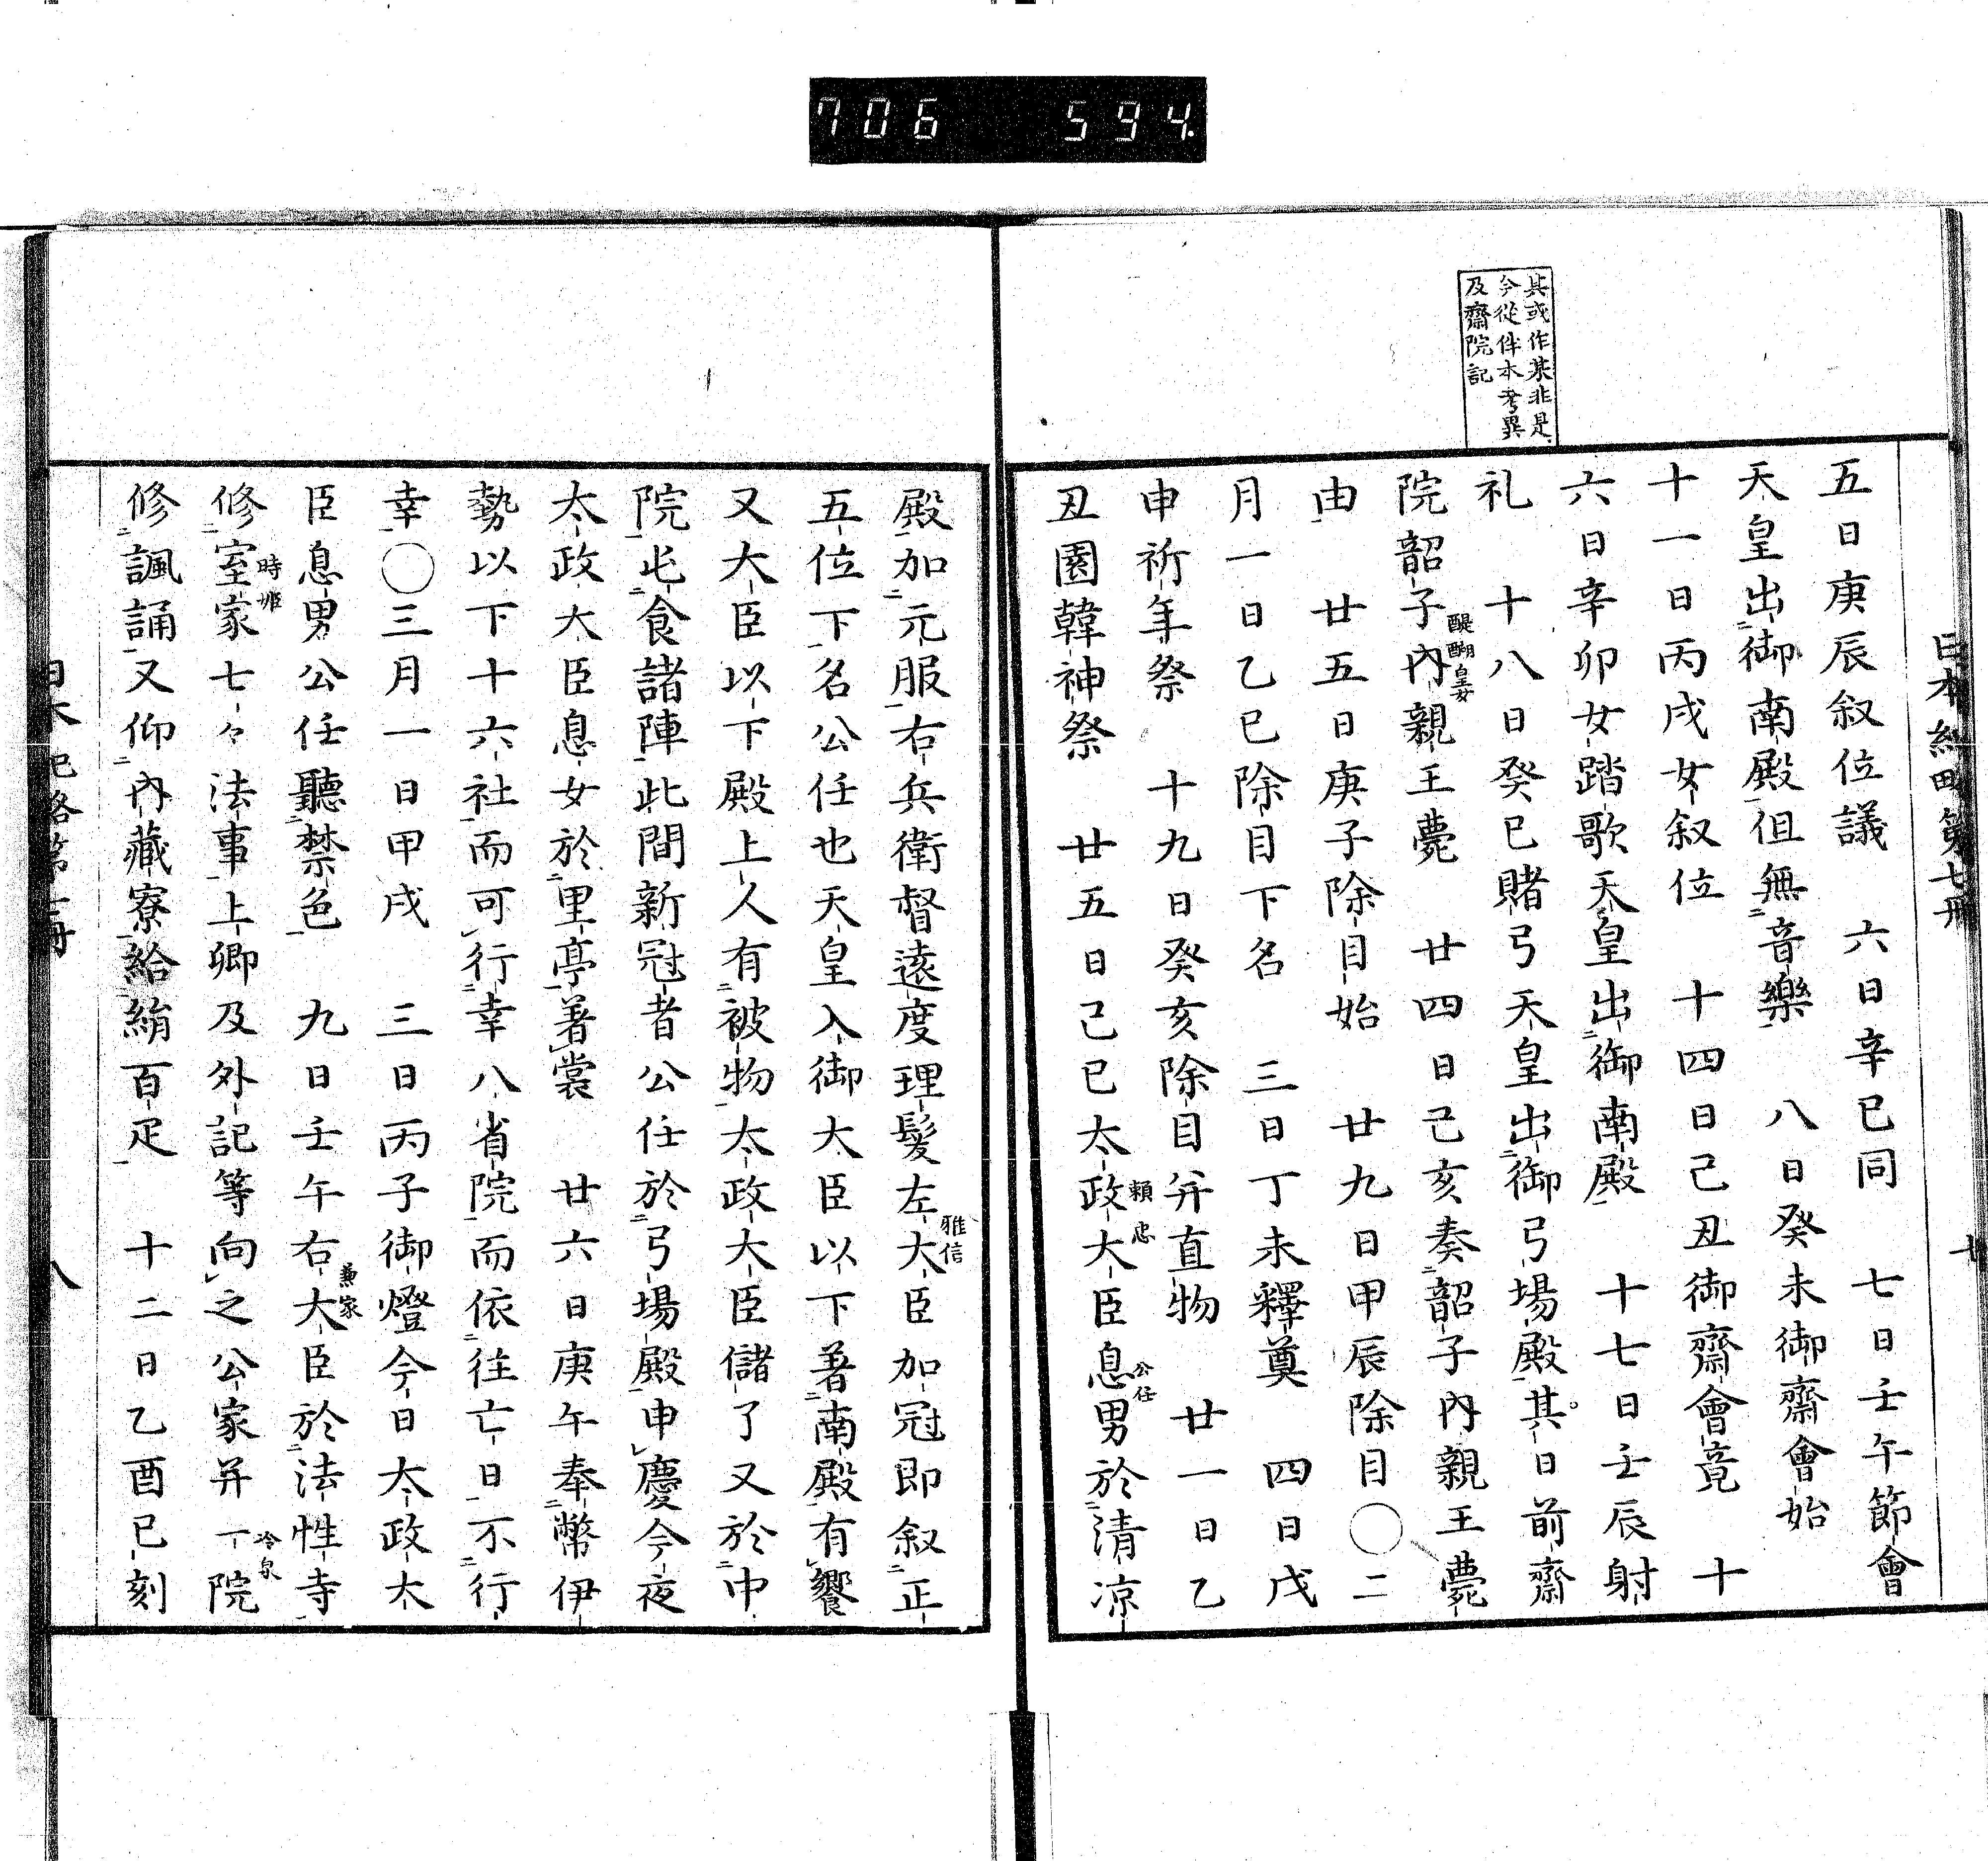 706 594.
日本紀略第七冊
其或作某非是
今從伴本考異
及齋院記
五日庚辰叙位議 六日辛巳同 七日壬午節會
天皇出御南殿但無音樂 八日癸未御齋會始
十一日丙戌女叙位 十四日己丑御齋會竟 十
六日辛卯女踏歌天皇出御南殿 十七日壬辰射
礼 十八日癸巳賭弓天皇出御弓場殿其日前齋
醍醐皇女
院韶子內親王薨 廿四日己亥奏韶子內親王薨
由 廿五日庚子除目始 廿九日甲辰除目〇二
月一日乙巳除目下名 三日丁未釋奠 四日戊
申祈年祭 十九日癸亥除目并直物 廿一日乙
賴忠 公任
丑園韓神祭 廿五日己巳太政大臣息男於清凉
雅信
殿加元服右兵衛督遠度理髮左大臣加冠即叙正
五位下名公任也天皇入御大臣以下著南殿有饗
又大臣以下殿上人有被物太政大臣儲了又於中
院屯食諸陣此間新冠者公任於弓場殿申慶今夜
太政大臣息女於里亭著裳 廿六日庚午奉幣伊
勢以下十六社而可行幸八省院而依往亡日不行
幸〇三月一日甲戌 三日丙子御燈今日太政大
兼家
臣息男公任聽禁色 九日壬午右大臣於法性寺
時姫 冷泉
修室家七々法事上卿及外記等向之公家并一院
修諷誦又仰內藏寮給絹百疋 十二日乙酉巳刻
日本紀略第七冊 八